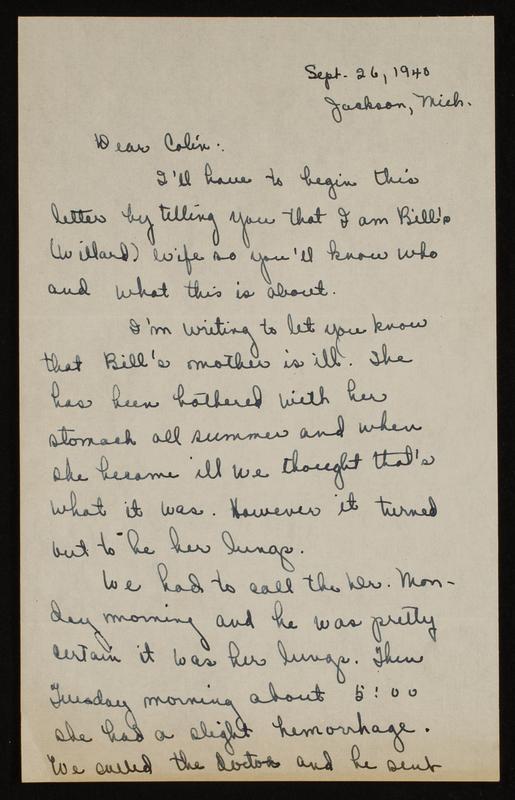 Sept. 26, 1940
Jackson, Mich.
Dear Colin:
I'll have to begin this
letter by telling you that I am Bill's
(Willard) wife so you'll know who
and what this is about.
I'm writing to let you know
that Bill's mother is ill. She
has been bothered with her
stomach all summer and when
she became ill we thought that's
what it was. However it turned
out to be her lungs.
We had to call the Dr. Mon-
day morning and he was pretty
certain it was her lungs. Then
Tuesday morning about 5:00
she had a slight hemorrhage.
We called the doctor and he sent